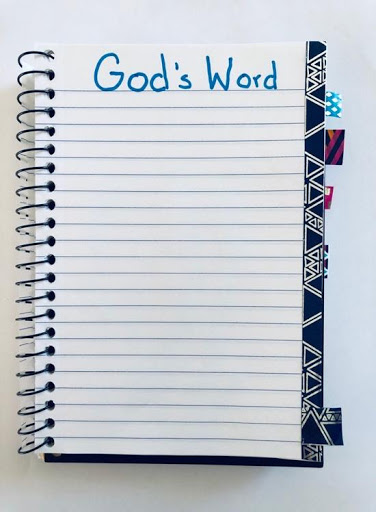 God's Word